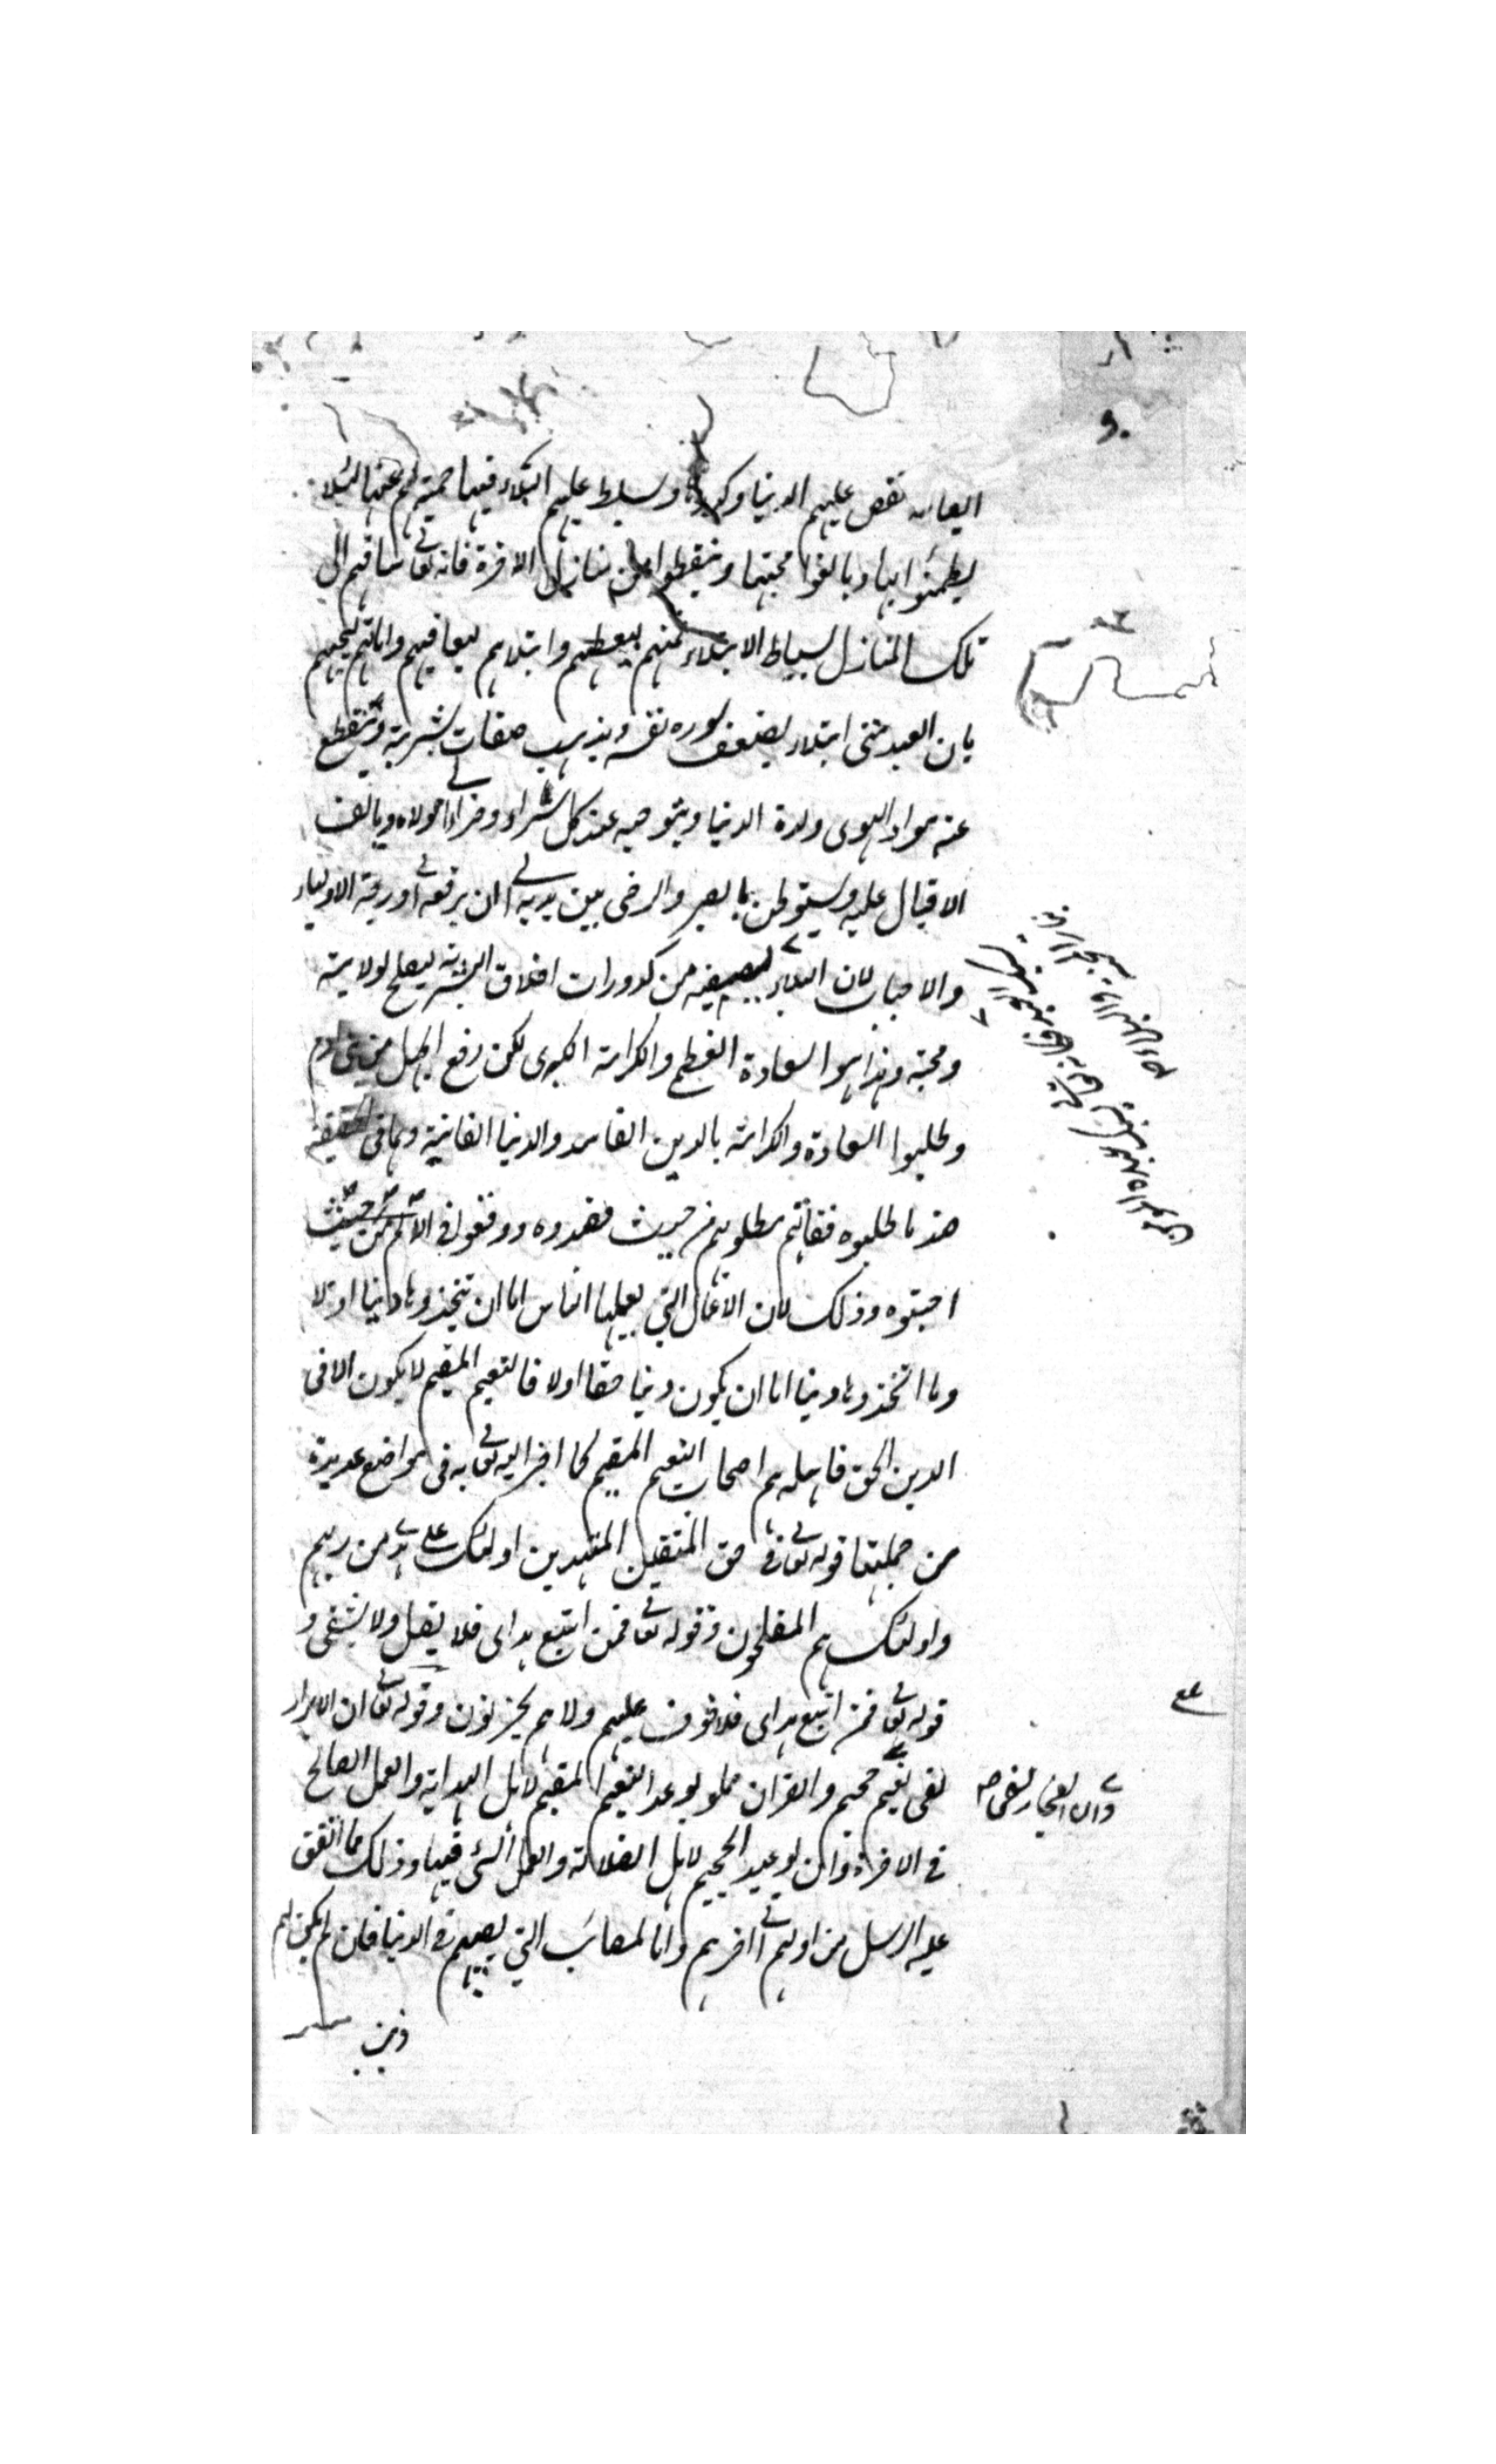 نقص عليهم الدنيا وكدرها وسلط عليهم البلاء فيها حمية لهم عنها لئلا
يطمئنوا بها ويالفوا محبتها وينقطعوا عن منازل الاخرة فانه تعالى ساقهم الى
تلك المنازل بسياط الابتلاء منهم ليعطيهم وابتلاهم ليعافيهم واماتهم ليحييهم
بان العبد متى ابتلاه يضعف سوره نفسه ويذهب صفات بشريته وينقطع
عنه مواد الهوى ولذة الدنيا ويتوجه عند كل سراء وضراء الى مولاه ويالف
الاقبال عليه ويستوطن بالصبر والرضى بين يديه الى ان يرفعه الى درجة الاولياء
والاحباب لان البلاء يصفيه من كدورات اخلاق البشرية ليصلح لولايته
ومحبته وهذا هو السعادة العظمى والكرامة الكبرى لكن رفع الجهل من بنى ادم
وطلبوا السعادة والكرامة بالدين الفاسد والدنيا الفانية وهما فى الحقيقة
ضد ما طلبوه ففاتهم مطلوبهم من حيث قصدوه ووقعوا فى الالم من حيث
احبتوه وذلك لان الاعمال التي يعملها الناس اما ان يتخذوها دينا او لا
وما اتخذوها دينا اما ان يكون دينا حقا اولا فالنعيم المقيم لا يكون الا فى
الدين الحق فاهله هم اصحاب النعيم المقيم كما اخبر الله تعالى به فى مواضع عديدة
من جملتها قوله تعالى فى حق المتقين المهتدين اولئك على هدى من ربهم
واولئك هم المفلحون وقوله تعالى فمن اتبع هداى فلا يضل ولا يشقى و
قوله تعالى فمن اتبع هداى فلا خوف عليهم ولا هم يحزنون وقوله تعالى ان الابرار
لفى نعيم جحيم والقران مملو بوعد النعيم المقيم لاهل الهداية والعمل الصالح
وان الفجار لفى صح
فى الاخرة وان بوعيد الجحيم لاهل الضلالة والعمل السئ فيها وذلك مما اتفق
عليه الرسل من اولهم الى اخرهم واما المصائب التي يصيبهم فى الدنيا فان لم يكن لهم
ذنب